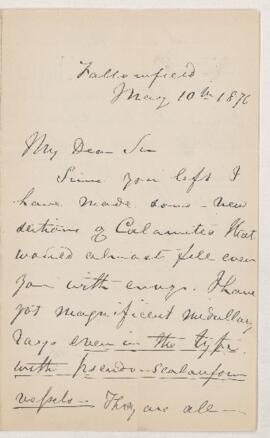 Fallowfield
May 10th 1876
My Dear Sir
Since you left I
have made some new
sections of Calamites that
would almost fill even
you with envy. I have
got magnificent medullary
rays even in the type
with pseudo-scalariform
vessels. They are all